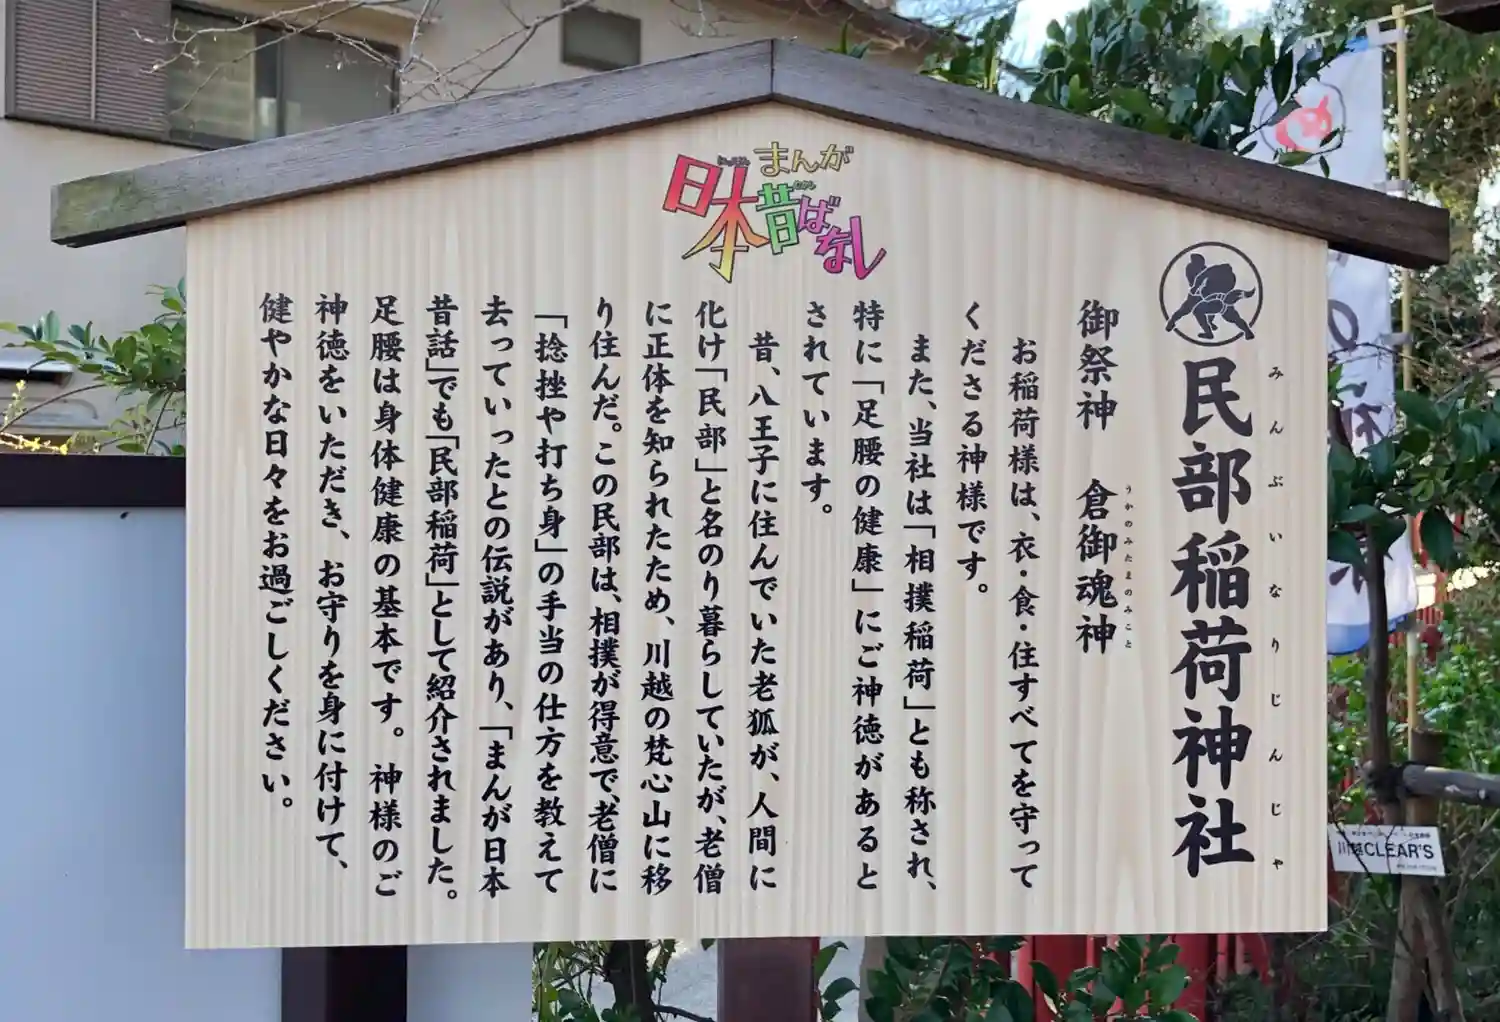 まんが
日本昔ばなし
にっぽん
むかし
民部稲荷神社
みんぶいなりじんじゃ
御祭神 倉御魂神
うかのみたまのみこと
お稲荷様は、衣・食・住すべてを守って
くださる神様です。
また、当社は「相撲稲荷」とも称され、
特に「足腰の健康」にご神徳があると
されています。
昔、八王子に住んでいた老狐が、人間に
化け「民部」と名のり暮らしていたが、老僧
に正体を知られたため、川越の梵心山に移
り住んだ。この民部は、相撲が得意で、老僧に
「捻挫や打ち身」の手当の仕方を教えて
去っていったとの伝説があり、「まんが日本
昔話」でも「民部稲荷」として紹介されました。
足腰は身体健康の基本です。神様のご
神徳をいただき、お守りを身に付けて、
健やかな日々をお過ごしください。
川越CLEAR'S